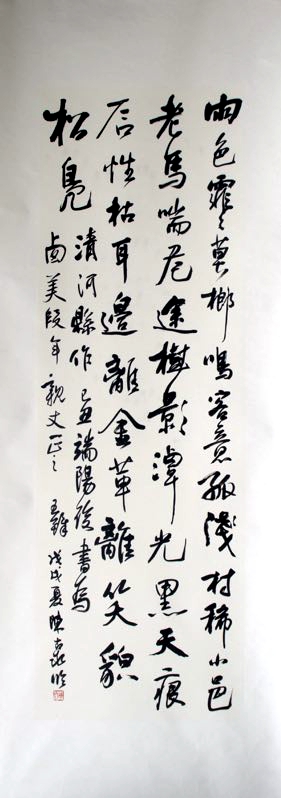 雨色霏〻莫榔鳴客意孤淺村稀小邑
老馬喘危途樹影潭光黑天痕
性枯耳邊離金革離笑貌
松鳧
清河縣作 己丑端陽後書為
美段年親丈正之
戊戌夏陳